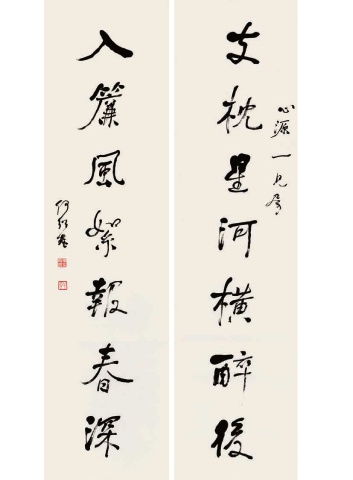 心源一兄屬
支枕星河橫醉後
入簾風絮報春深
何紹基